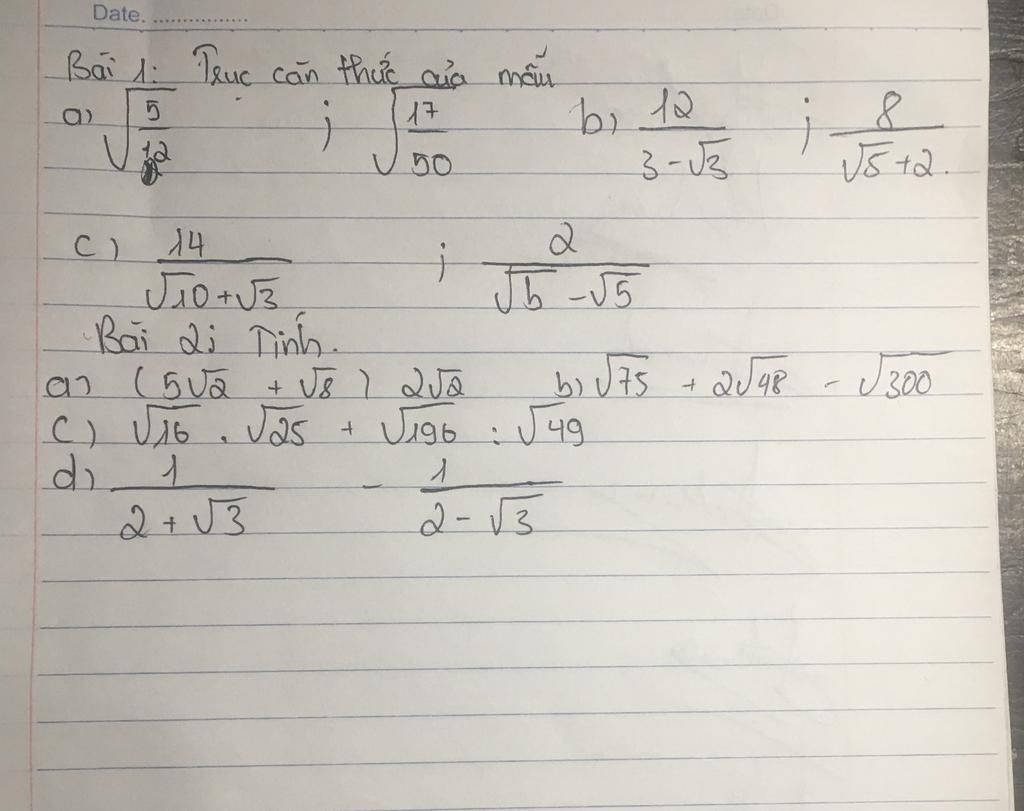 Date. ................
Bài 1: Trục căn thức của mẫu
a) √(5/12) ; √(17/50) b) 12/(3-√3) ; 8/(√5+2).
c) 14/(√10+√3) ; 2/(√b-√5)
Bài 2: Tính.
a) (5√2 + √8) 2√2 b) √75 + 2√48 - √300
c) √16 . √25 + √196 : √49
d) 1/(2+√3) - 1/(2-√3)